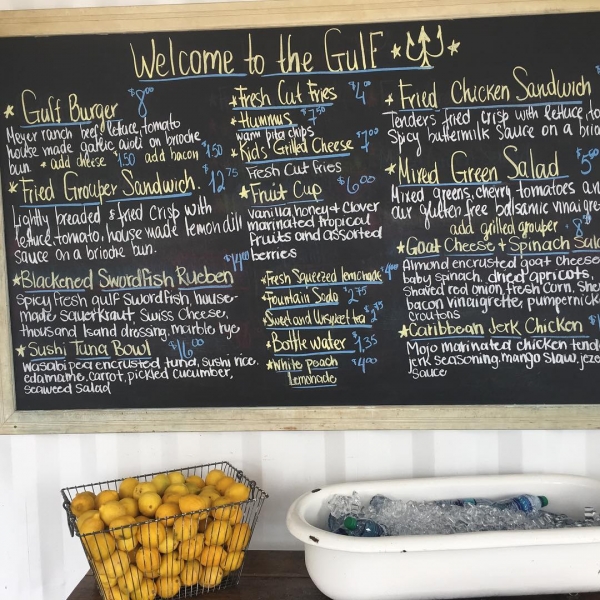 Welcome to the Gulf
Gulf Burger $8.00
Meyer ranch beef, lettuce, tomato
house made garlic aioli on brioche
bun. * add cheese $1.50 add bacon $1.50
Fried Grouper Sandwich. $12.75
Lightly breaded & fried crisp with
lettuce, tomato, house made lemon dill
sauce on a brioche bun.
Blackened Swordfish Rueben $14.00
Spicy fresh gulf swordfish house-
made sauerkraut, Swiss Cheese,
thousand Island dressing, marble rye
Sushi Tuna Bowl $16.00
wasabi pea encrusted tuna, sushi rice,
edamame, carrot, pickled cucumber,
seaweed salad
Fresh Cut Fries $4.00
Hummus $7.50
warm pita chips
Kid's Grilled Cheese $7.00
Fresh Cut Fries
Fruit Cup $6.00
vanilla, honey & Clover
marinated tropical
fruits and assorted
berries
Fresh Squeezed lemonade 4.00
Fountain Soda $2.75
Sweet and Unsweet tea
Bottle water $1.35
White peach $4.00
Lemonade
Fried Chicken Sandwich $
Tenders fried crisp with lettuce, to
Spicy buttermilk sauce on a brio
Mixed Green Salad $5
Mixed greens, cherry tomatoes an
our gluten free balsamic vinaigre
add grilled grouper $8
Goat Cheese & Spinach Sala
Almond encrusted goat cheese
baby spinach, dried apricots,
shaved red onion, fresh corn, She
bacon vinaigrette, pumpernick
croutons
Caribbean Jerk Chicken $
Mojo marinated chicken tend
Jerk seasoning, mango slaw, jeze
sauce